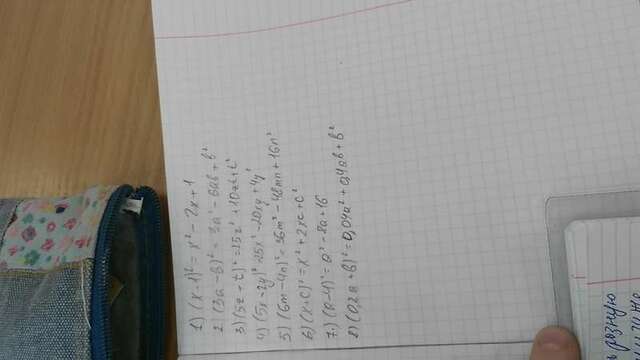 1) (x-1)² = x² - 2x + 1
2) (3a - b)² = 3a² - 6ab + b²
3) (5z - t)² = 25z² + 10zt + t²
4) (5x - 2y)² = 25x² - 20xy + 4y²
5) (6m - 4n)² = 36m² - 48mn + 16n²
6) (x + c)² = x² + 2xc + c²
7.) (a - 4)² = a² - 8a + 16
8) (0,2a + b)² = 0,04a² + 0,4ab + b²
разную